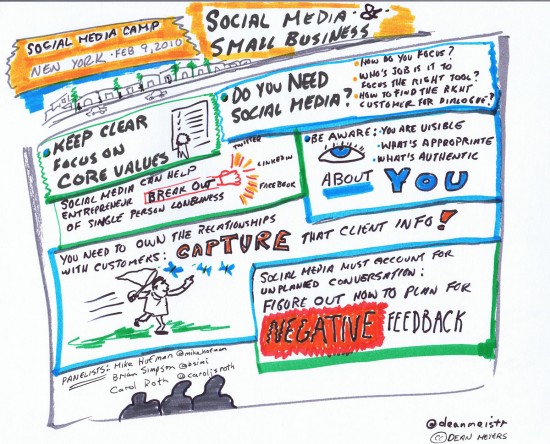 SOCIAL MEDIA CAMP
NEW YORK • FEB 9, 2010
SOCIAL MEDIA &
SMALL BUSINESS
• DO YOU NEED
SOCIAL MEDIA?
• HOW DO YOU FOCUS?
• WHO'S JOB IS IT TO
FOCUS THE RIGHT TOOL?
• HOW TO FIND THE RIGHT
CUSTOMER FOR DIALOGUE?
• KEEP CLEAR
FOCUS ON
CORE VALUES
• BE AWARE: YOU ARE VISIBLE
• WHAT'S APPROPRIATE
• WHAT'S AUTHENTIC
ABOUT YOU
SOCIAL MEDIA CAN HELP
ENTREPRENEUR BREAK OUT
OF SINGLE PERSON LONELINESS
TWITTER
LINKEDIN
FACEBOOK
YOU NEED TO OWN THE RELATIONSHIPS
WITH CUSTOMERS: CAPTURE THAT CLIENT INFO!
SOCIAL MEDIA MUST ACCOUNT FOR
UNPLANNED CONVERSATION:
FIGURE OUT HOW TO PLAN FOR
NEGATIVE FEEDBACK
PANELISTS: Mike Hofman @mikehofman
Brian Simpson @bsimi
Carol Roth @caroljsroth
@deanmeistr
© DEAN MEYERS